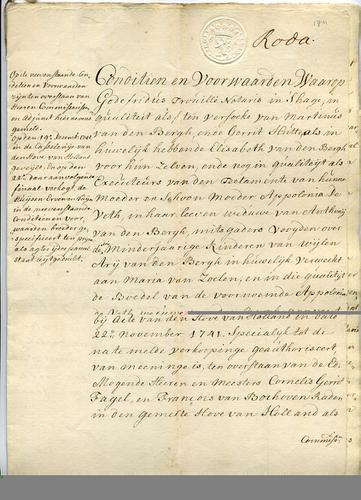 Roda.
Op de nevenstaande Con-
ditien en Voorwaarden
zijn ten overstaan van
Heeren Commissarissen
en Adjunct hier nevens
gemelt.
Op den 19e December 1741
in de Casteleny van
den Hove van Holland
22en daar aan volgende
finaal verkogt, de
in de nevenstaande
Conditien en Voor-
waarden breeder ge-
specificeert ten pryse
als agter ider perceel
staat uijtgedrukt.
Conditien en Voorwaarden Waarop
Godefridus Trouille Notaris in 's Hage, in
qualiteit als ten versoeke van Martinus
van den Bergh, ende Gerrit als in
huwelijk hebbende Elisabeth van den Bergh
voor hun zelven, ende nog in qualiteijt als
Executeurs van den Testamente van hunne
Moeder en Schoon Moeder Appolonia de
Veth, in haar leeven weduwe van Anthonij
van den Bergh, mitsgaders Voogden over
de Minderjaarige Kinderen van wijlen
Arij van den Bergh in huwelijk verweckt
aan Maria van Zoelen, en in die qualiteijt
de Boedel van de voornoemde Appolonia
de Veth
bij Acte van den Hove van Holland in dato
22en November 1741. Specialijk tot de
nate melde verkopinge geauthoriseert
van meeninge is, ten overstaan van de Ed.
Mogende Heeren en Meesters Cornelis Gerrit
Fagel, en François van Bochoven Raden
in den gemelte Hove van Holland als
Commissn.